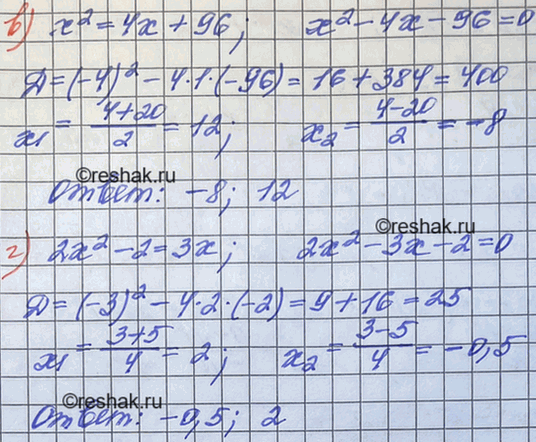 в) x² = 4x + 96; x² - 4x - 96 = 0
D = (-4)² - 4·1·(-96) = 16 + 384 = 400
x₁ = (4+20)/2 = 12; x₂ = (4-20)/2 = -8
©reshak.ru
Ответ: -8; 12
©reshak.ru
г) 2x² - 2 = 3x; 2x² - 3x - 2 = 0
D = (-3)² - 4·2·(-2) = 9 + 16 = 25
x₁ = (3+5)/4 = 2; x₂ = (3-5)/4 = -0,5
©reshak.ru
Ответ: -0,5; 2